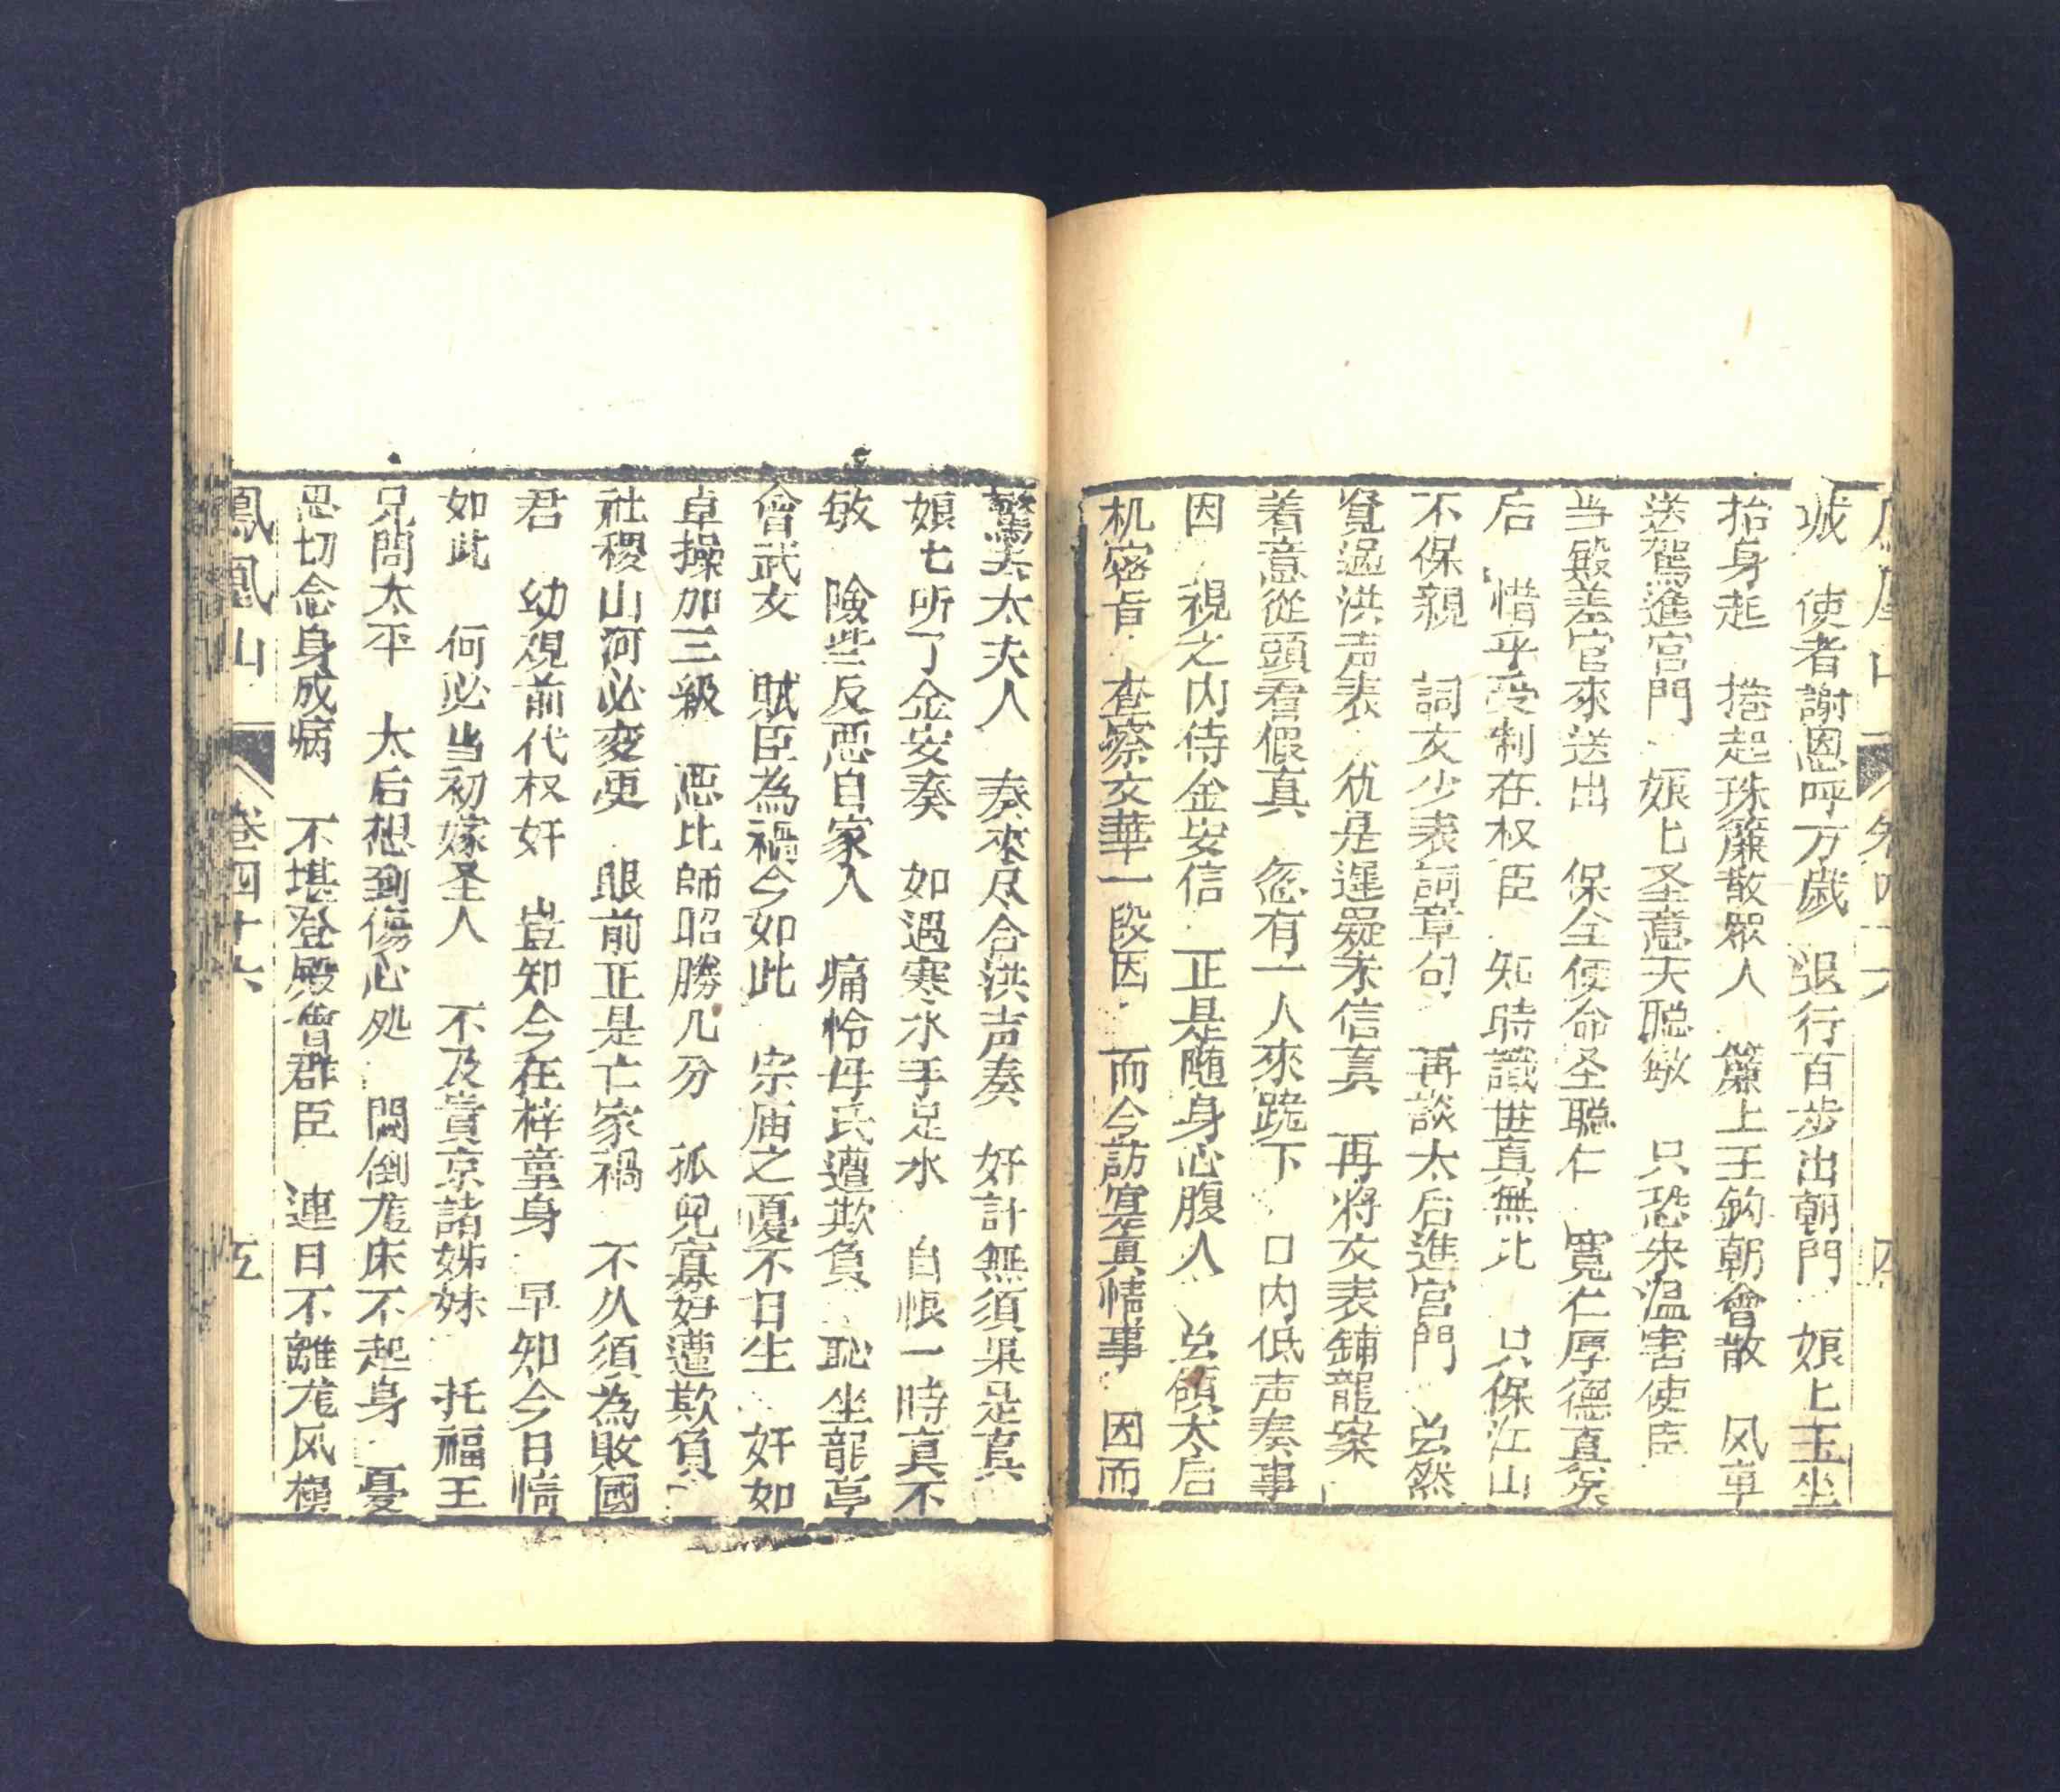 城 使者謝恩呼万歲 退行百步出朝門 娘匕玉坐
抬身起 捲起珠簾散眾人 簾上玉鈎朝會散 风車
送駕進宮門 娘匕圣意天聪敏 只恐朱温害使臣
当殿差官來送出 保全使命圣聪仁 寬仁厚德真矣
后 惜乎受制在权臣 知時識世真無比 只保江山
不保親 詞文少表詞章句 再談太后進宮門 㒷然
覧過洪声表 犹是遲疑未信真 再將文表鋪龍案
着意從頭看假真 忽有一人來跪下 口内低声奏事
因 視之内侍金安信 正是随身心腹人 㒷領太后
机密旨 查察文華一段因 而今訪寔真情事 因而
驚天太夫人 奏來尽合洪声奏 奸計無須果是真
娘匕听了金安奏 如遇寒水手足氷 自恨一時真不
敏 險些反惡自家人 痛怜母氏遭欺負 恥坐龍亭
會武女 賊臣為禍今如此 宗庙之憂不日生 奸如
卓操加三級 惡比師昭勝几分 孤児寡婦遭欺負
社稷山河必变更 眼前正是亡家禍 不久須為敗國
君 幼覌前代权奸 豈知今在梓童身 早知今日情
如此 何必当初嫁圣人 不及崀京諸姊妹 托福王
兄問太平 太后想到傷心処 悶倒尨床不起身 憂
思切念身成病 不堪登殿會群臣 連日不離尨风榻
鳳凰山 卷四十六 五